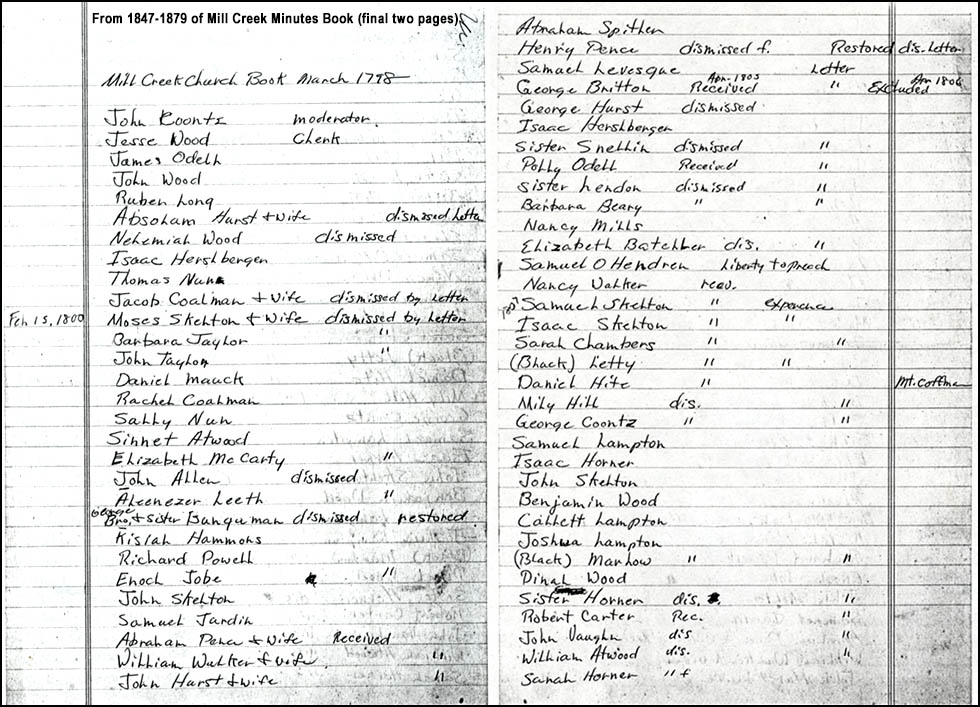 From 1847-1879 of Mill Creek Minutes Book (final two pages)
Mill Creek Church Book March 1798
John Coontz moderator.
Jesse Wood Clerk
James Odell
John Wood
Ruben Long
Absolom Hurst & wife dismissed Letter
Nehemiah Wood dismissed
Isaac Hershberger
Thomas Nunn
Jacob Coalman & wife dismissed by Letter
Feb 15, 1800 Moses Skelton & Wife dismissed by Letter
Barbara Taylor "
John Taylor "
Daniel Mauck
Rachel Coalman
Sally Nun
Sinnet Atwood
Elizabeth McCarty "
John Allen dismissed
Abeenezer Leeth "
George
Bro. & sister dismissed restored
Kisiah Hammons
Richard Powell
Enoch Jobe "
John Skelton
Samuel Jardin
Abraham Pence & wife Received
William Walker & wife "
John Hurst & wife "
Abraham Spitler
Henry Pence dismissed f. Restored dis. Letter
Samuel Levesque Letter
George Britton Apr. 1803 Received " Excluded Apr 1806
George Hurst dismissed
Isaac Hershberger
Sister Snellin dismissed "
Polly Odell Received "
Sister Lendon dismissed "
Barbara Beary " "
Nancy Mills
Elizabeth Batchler dis. "
Samuel O Hendren Liberty to preach
Nancy Walker recv.
1807 Samuel Skelton " experience
Isaac Skelton " "
Sarah Chambers " "
(Black) Letty " "
Daniel Hite " Mt. Coffman
Mily Hill dis. "
George Coontz " "
Samuel Lampton
Isaac Horner
John Skelton
Benjamin Wood
Callett Lampton
Joshua Lampton
(Black) Manlow " "
Dinah Wood
Sister Horner dis. "
Robert Carter Rec. "
John Vaughn dis "
William Atwood dis. "
Sarah Horner " f